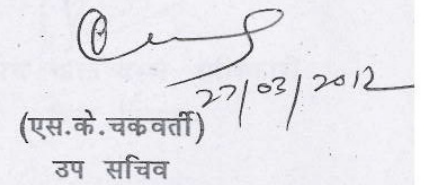 27/03/2012
(एस.के.चकवर्ती)
उप सचिव